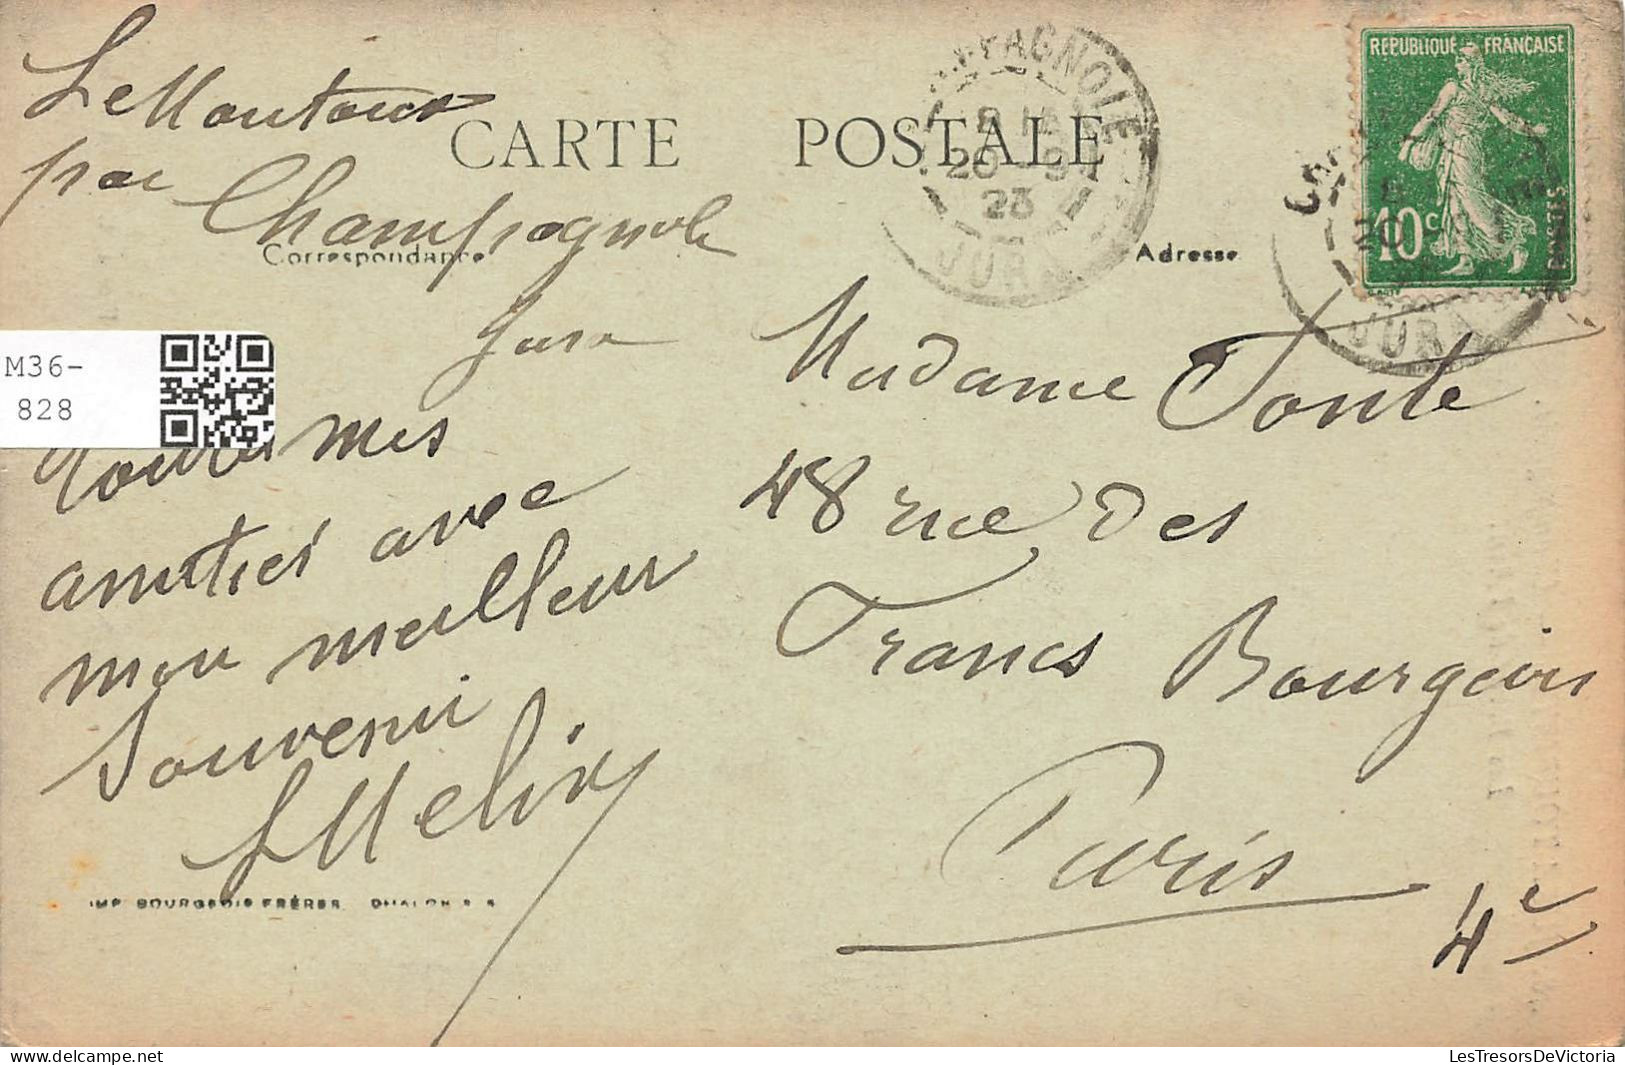 Le Moutoux
CARTE POSTALE
par Champagnole
Correspondance
Adresse
Jura
REPUBLIQUE FRANÇAISE
10c
POSTES
20 - 9
23
JURA
M36-
828
Toutes mes
amitiés avec
mon meilleur
souvenir
Madame Tonte
48 rue des
Francs Bourgeois
Paris
4e
IMP. BOURGEOIS FRÈRES, CHALON S. S.
LesTresorsDeVictoria